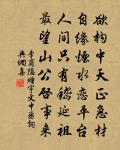 欲构中天正急材
自緣煙水恋平台
人间只有嵇延祖
最望山公啓事来
李商隐赠宇文中丞詞
典網集